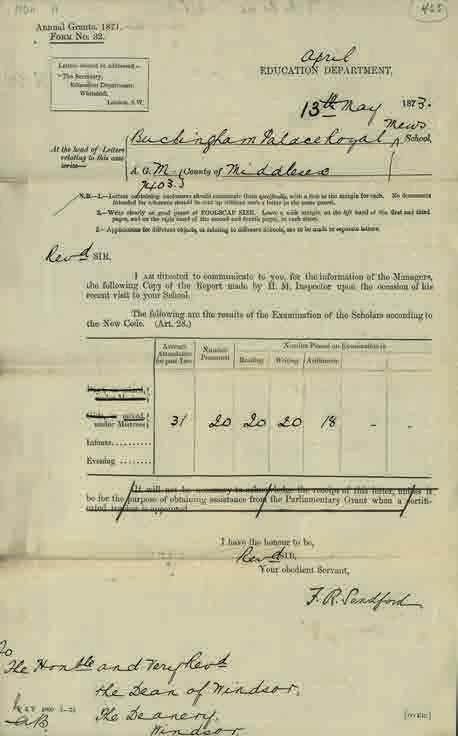 425
Annual Grants. 1871.
FORM No. 32.
Letters should be addressed,—
"The Secretary,
Education Department,
Whitehall,
London, S.W."
April
EDUCATION DEPARTMENT,
13th May 1873.
Buckingham Palace Royal Mews School,
At the head of Letters relating to this case write—
A. G. M County of Middlesex
7403
N.B.—1.—Letters containing enclosures should enumerate them specifically, with a line in the margin for each. No documents
intended for schedule should be sent up without such a letter in the same parcel.
2.—Write clearly on good paper of FOOLSCAP SIZE. Leave a wide margin on the left hand of the first and third
pages, and on the right hand of the second and fourth pages, in each sheet.
3.—Applications for different objects, or relating to different Schools, are to be made in separate letters.
Revd SIR,
I AM directed to communicate to you, for the information of the Managers,
the following Copy of the Report made by H. M. Inspector upon the occasion of his
recent visit to your School.
The following are the results of the Examination of the Scholars according to
the New Code. (Art. 28.)
Average Attendance for past Year
Number Presented
Number Passed on Examination in
Reading Writing Arithmetic
under Master
mixed,
under Mistress 31 20 20 20 18 - -
Infants
Evening
It will not be necessary to acknowledge the receipt of this letter, unless it
be for the purpose of obtaining assistance from the Parliamentary Grant when a certifi-
cated teacher is appointed.
I have the honour to be,
Revd SIR,
Your obedient Servant,
F. R. Sandford
To
The Honble and Very Revd
the Dean of Windsor,
The Deanery,
Windsor
[OVER.]